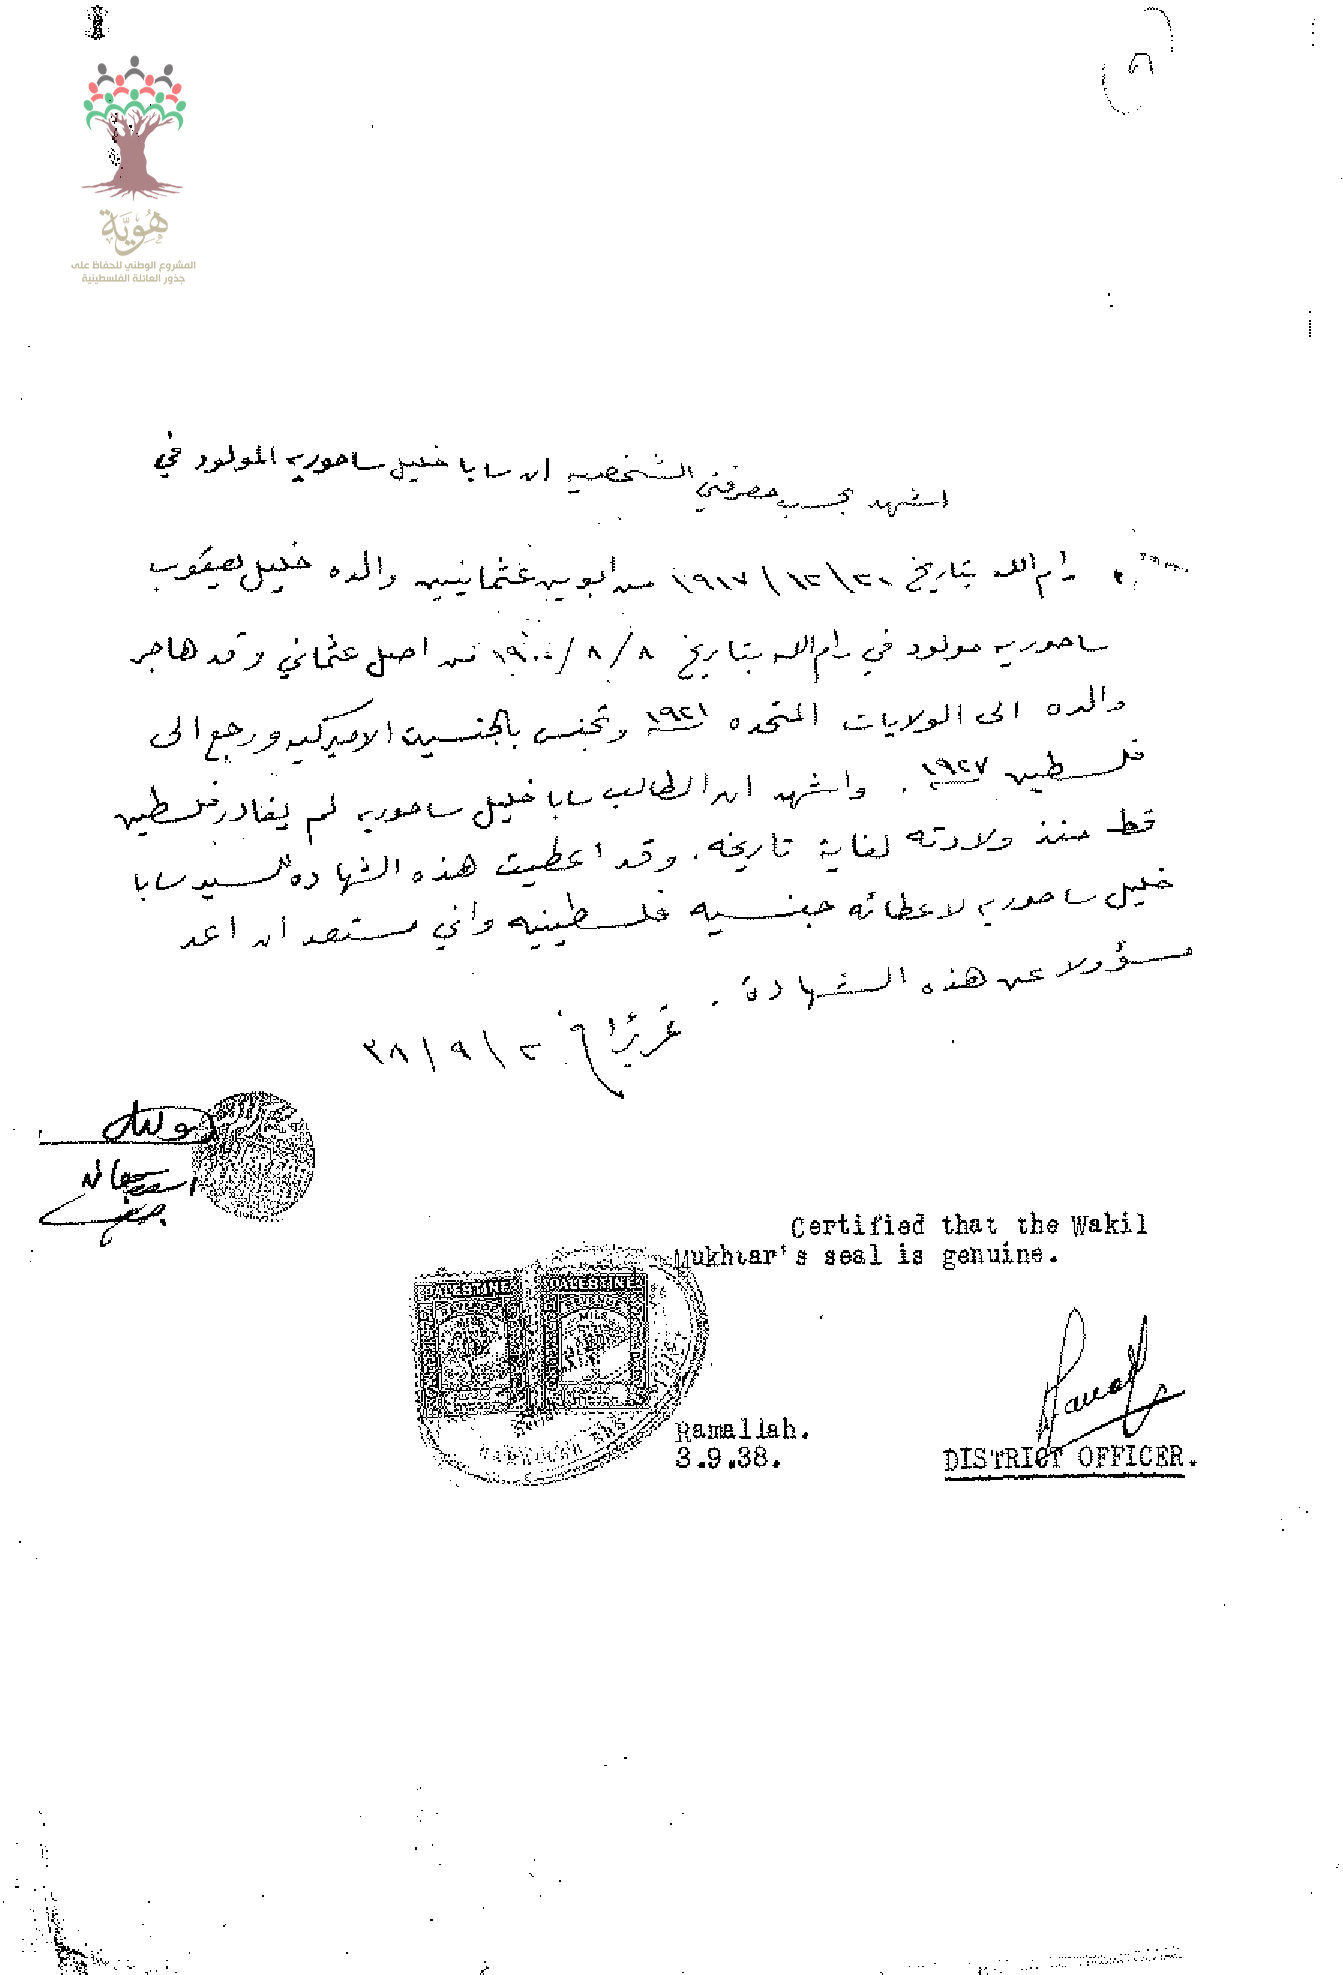 هُوِيَّة
المشروع الوطني للحفاظ على
جذور العائلة الفلسطينية
اشهد بحسب معرفتي الشخصيه ان سابا خليل ساحوريه المولود في
رام الله بتاريخ ٢٠/١٢/١٩١٧ من ابوين عثمانيين والده خليل يعقوب
ساحوريه مولود في رام الله بتاريخ ٨/٨/١٩٠٠ من اصل عثماني وقد هاجر
والده الى الولايات المتحده ١٩٢١ وتجنس بالجنسيه الاميركيه ورجع الى
فلسطين ١٩٢٧. واشهد ان الطالب سابا خليل ساحوريه لم يغادر فلسطين
قط منذ ولادته لغاية تاريخه. وقد اعطيت هذه الشهاده للسيد سابا
خليل ساحوريه لاعطائه جنسيه فلسطينيه واني مستعد ان اعد
مسؤولا عن هذه الشهادة.
تحريرًا في ٢/٩/٣٨
Certified that the Wakil
Mukhtar's seal is genuine.
PALESTINE PALESTINE
MILS
Ramallah.
3.9.38.
DISTRICT OFFICER.